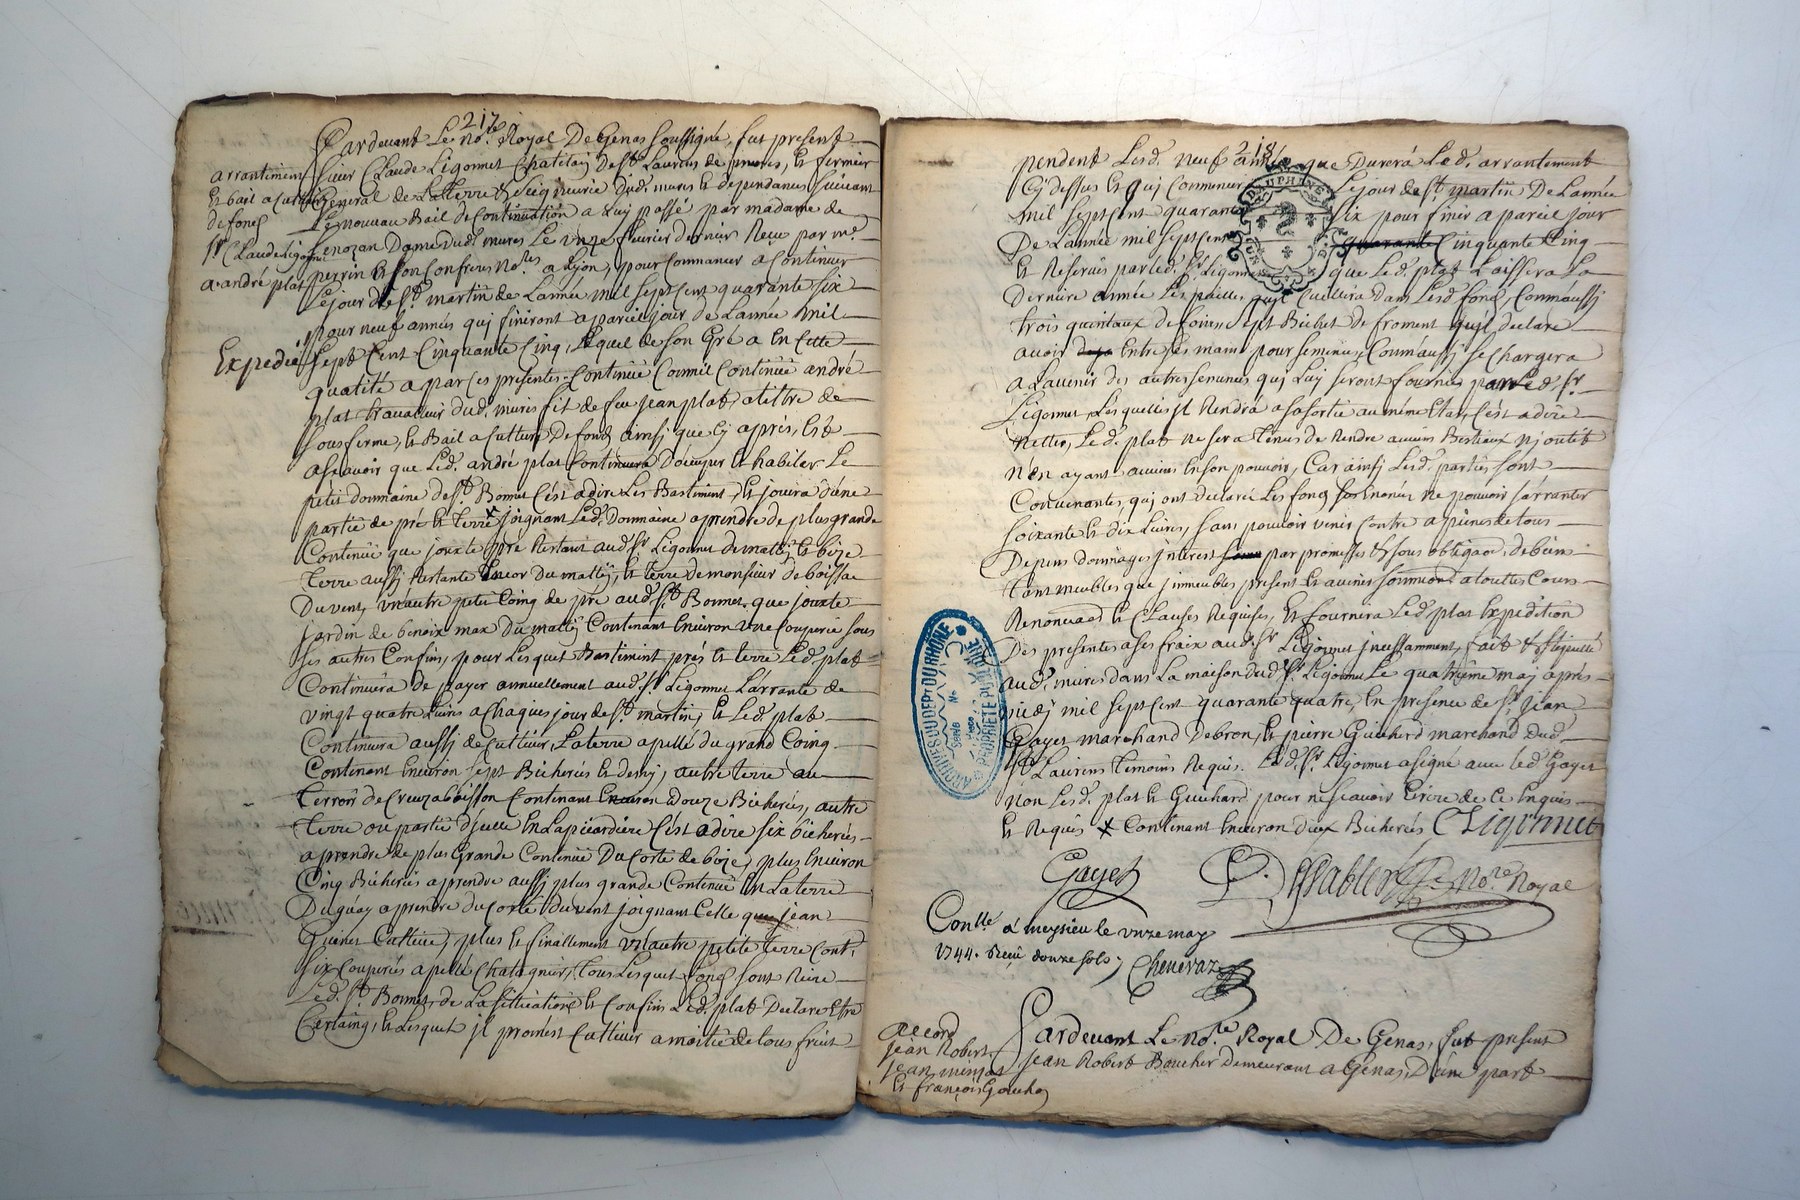 217
Pardevant Le No.re Royal De Genas soussigné, fut present
arrantement
et bail a culture
de fond
Sr. Claude Ligonnet
a andré plat
Expedié
Sieur Claude Ligonnet Chatelain de St. Laurens de mures, et fermier
General de La Terre et Seigneurie dud. mures et dependances suivant
Le nouveau Bail de Continuation a Luy passé par madame de
Senozan Dame dud. mures Le unze feurier dernier Reçu par me.
perrin et son Confrere No.res a Lyon, pour Commancer a Continuer
Le jour de St. martin de Lannée mil sept Cent quarante six
pour neuf années qui finiront a pareil jour de Lannée mil
Sept Cent Cinquante Cinq, Lequel de son Gré a en cette
qualité a par Ces presentes Continüé Comme il Continüe andré
plat travailleur dud. mures fils de feu jean plat, a tittre de
sous ferme, et Bail a Culture De fond ainsy que Cy apres, Est
ascavoir que Led. andré plat Continuera D'occuper et habiter Le
petit domaine de St. Bonnet C'est a dire Les Bastiment, et jouira d'une
partie de pré et terre x joignant Led. Domaine a prendre de plus grande
Contenüe que jouxte pré Restant aud. Sr. Ligonnet de matin, et bize
Terre aussy Restante Encor du mattin, et terre de monsieur de boissac
Du vent, un autre petit Coing de pré aud. St. Bonnet que jouxte
jardin de benoix max Du mattin Contenant Environ une Couperée sous
ses autres Confins, pour Lesquels Bastiment prés et terre Led. plat
Continuera de payer annuellement aud. Sr. Ligonnet L'arrante de
vingt quatre Livres a Chaques jour de St. martin, et Led. plat
Continuera aussy de Cultiver, La terre apellé du grand Coing
Contenant Environ sept Bicherées et demy, autre terre au
Terroir de Creuzaboisson Contenant Environ Douze Bicherées, autre
Terre ou partie d'jcelle en La picardiere C'est a dire six bicherées
a prendre de plus Grande Contenüe Du Coste de bize, plus Environ
Cinq Bicherées a prendre aussy plus grande Contenüe En La terre
Du guay a prendre du Costé du vent joignant Celle que jean
Guinet Cultive, plus et finallement un autre petite Terre Cont.
six Couperées apellé Chatagnier, Tous Lesquels fonds sont Riere
Led. St. Bonnet, de La sittuation et Confins Led. plat Declare Etre
Certaing, et Lesquels jl promest Cultiver a moitié de tous fruit
218
pendent Lesd. neuf années que Durera Led. arrantement
Cy dessus et qui Commencera Le jour de St. martin De Lannée
mil sept Cent quarante six pour finir a pareil jour
De Lannée mil sept Cent quarante Cinquante Cinq
et Reservés par led. Sr. Ligonnet que Led. plat Laissera La
Derniere année Les pailles qu'jl Cuillira dans Lesd. fonds, Comm'aussy
trois quintaux de foins, sept Bichet de froment qu'jl declare
avoir Entre ses mains pour semences, Comm'aussy se Chargera
a Lavenir des autres semences qui Luy seront fournies par Led. Sr.
Ligonnet, Lesquelles jl Rendra a sa sortie au méme Etat, C'est a dire
Nettes, Led. plat ne sera Tenus de Rendre aucuns Bestiaux ny outil
N'en ayant aucuns En son pouvoir, Car ainsy Lesd. parties sont
Convenantes, qui ont declaré Les fonds susEnoncés ne pouvoir s'arranter
soixante et dix Livres, sans pouvoir venir Contre a peines de tous
Depens dommages jnterest par promesses et sous obliga.on de biens
Tant meubles que jmmeubles present et avenir soumission a toutes Cours
Renoncia.on et Clauses Requises, et fournira Led. plat Expedition
Des presentes a ses fraix aud. Sr. Ligonnet jncessamment, fait et stipullé
aud. mures dans La maison dud. Sr. Ligonnet Le quatrième may après
midy mil sept Cent quarante quatre, En presence de Sr. Jean
Gayet marchand De bron, et pierre Guichard marchand dud.
St. Laurens Témoins Requis. Led. Sr. Ligonnet a signé avec led. Gayet
non Lesd. plat et Guichard pour ne scavoir Ecrire de Ce Enquis
et Requis x Contenant Environ dix Bicherées CLigonnet
Gayet
No.re Royal
Conllé a meysieu le unze may
1744. Reçu douze sols, Chenevaz
accord
jean Robert
et françois Gouho
Pardevant Le No.re Royal De Genas, fut present
Jean Robert Boucher demeurant a Genas, D'une part
ARCHIVES DU DEPT DU RHÔNE
PROPRIÉTÉ PUBLIQUE